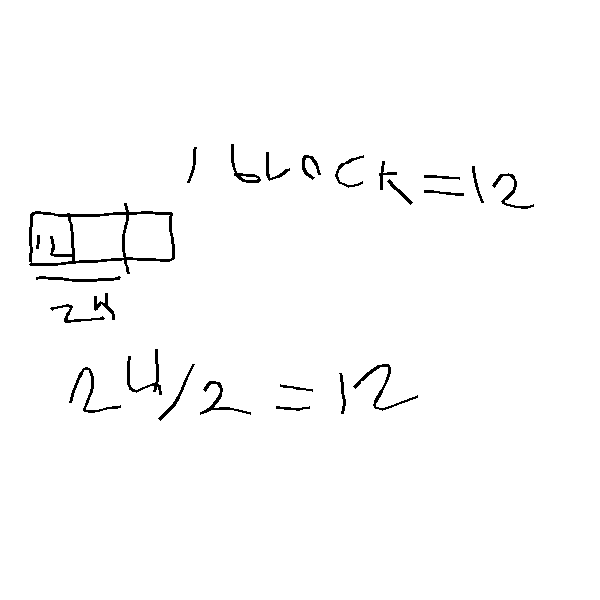 1 bLOCK = 12
12
24
24/2 = 12